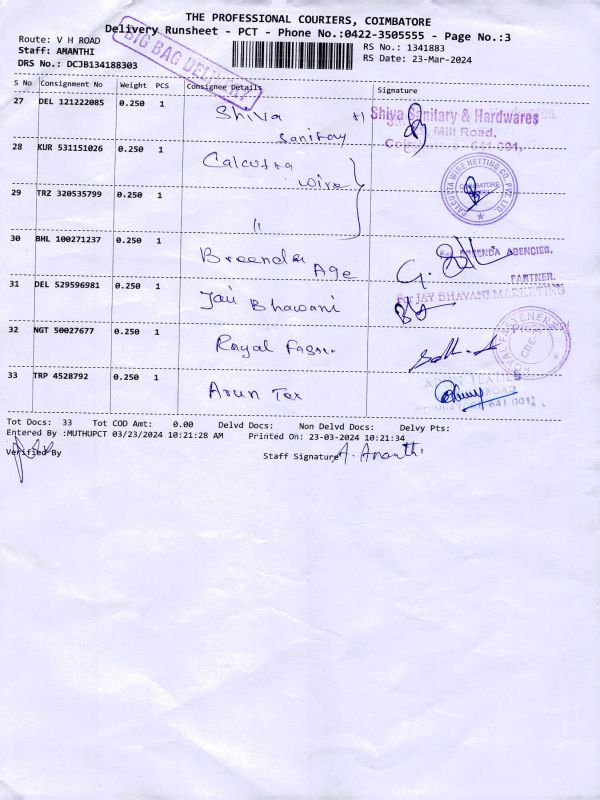 THE PROFESSIONAL COURIERS, COIMBATORE
Delivery Runsheet - PCT - Phone No.:0422-3505555 - Page No.:3
Route: V H ROAD
Staff: ANANTHI
DRS No.: DCJB134188303
RS No.: 1341883
RS Date: 23-Mar-2024
BIG BAG DELIVERY
S No Consignment No Weight PCS Consignee Details Signature
27 DEL 121222085 0.250 1 Shiva Sanitary
Shiva Sanitary & Hardwares
Mill Road,
28 KUR 531151026 0.250 1 Calcutta wire
CALCUTTA WIRE NETTING CO. PVT. LTD
COIMBATORE
29 TRZ 320535799 0.250 1 "
30 BHL 100271237 0.250 1 Breenda Age
AGENCIES,
PARTNER.
31 DEL 529596981 0.250 1 Jai Bhavani
For JAY BHAVANI MARKETING
32 NGT 50027677 0.250 1 Royal Fasn.
CBE
33 TRP 4528792 0.250 1 Arun Tex
ROAD
641 001
Tot Docs: 33 Tot COD Amt: 0.00 Delvd Docs: Non Delvd Docs: Delvy Pts:
Entered By :MUTHUPCT 03/23/2024 10:21:28 AM Printed On: 23-03-2024 10:21:34
Verified By Staff Signature A. Ananthi